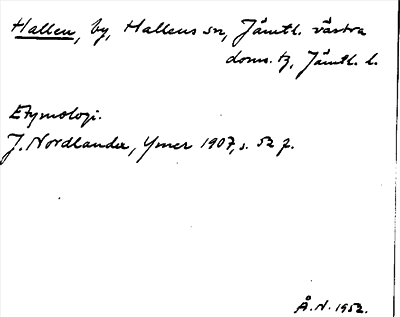 Hallen, by, Hallens sn, Jämtl. västra
doms. tg, Jämtl. l.
Etymologi.
J. Nordlander, Ymer 1907, s. 52 f.
Å.N. 1952.